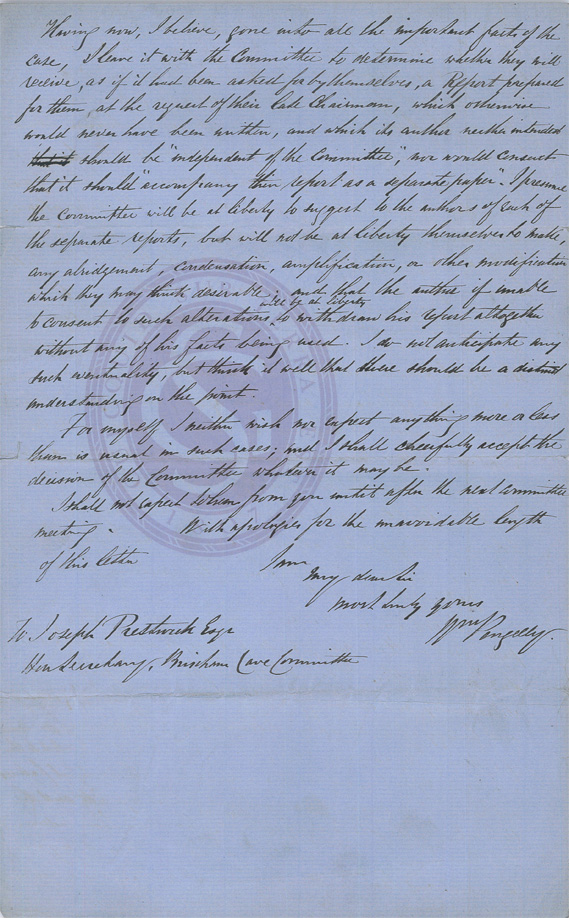 Having now, I believe, gone into all the important facts of the
case, I leave it with the Committee to determine whether they will
receive, as if it had been asked for by themselves, a Report prepared
for them, at the request of their late Chairman, which otherwise
would never have been written, and which its author neither intended
that it should be "independent of the Committee", nor would consent
that it should "accompany their report as a separate paper". I presume
the Committee will be at liberty to suggest to the authors of each of
the separate reports, but will not be at liberty themselves to make,
any abridgement, condensation, amplification, or other modification
which they may think desirable; and that the author if unable
to consent to such alterations, will be at liberty to withdraw his report altogether
without any of his facts being used. I do not anticipate any
such eventuality, but think it well that there should be a distinct
understanding on the point.
For myself I neither wish nor expect anything more or less
than is usual in such cases; and I shall cheerfully accept the
decision of the Committee whatever it may be.
I shall not expect to hear from you until after the next Committee
meeting. With apologies for the unavoidable length
of this letter I am
My dear Sir
most truly yours
Wm Pengelly.
To Joseph Prestwich Esqr
Hon Secretary, Brixham Cave Committee